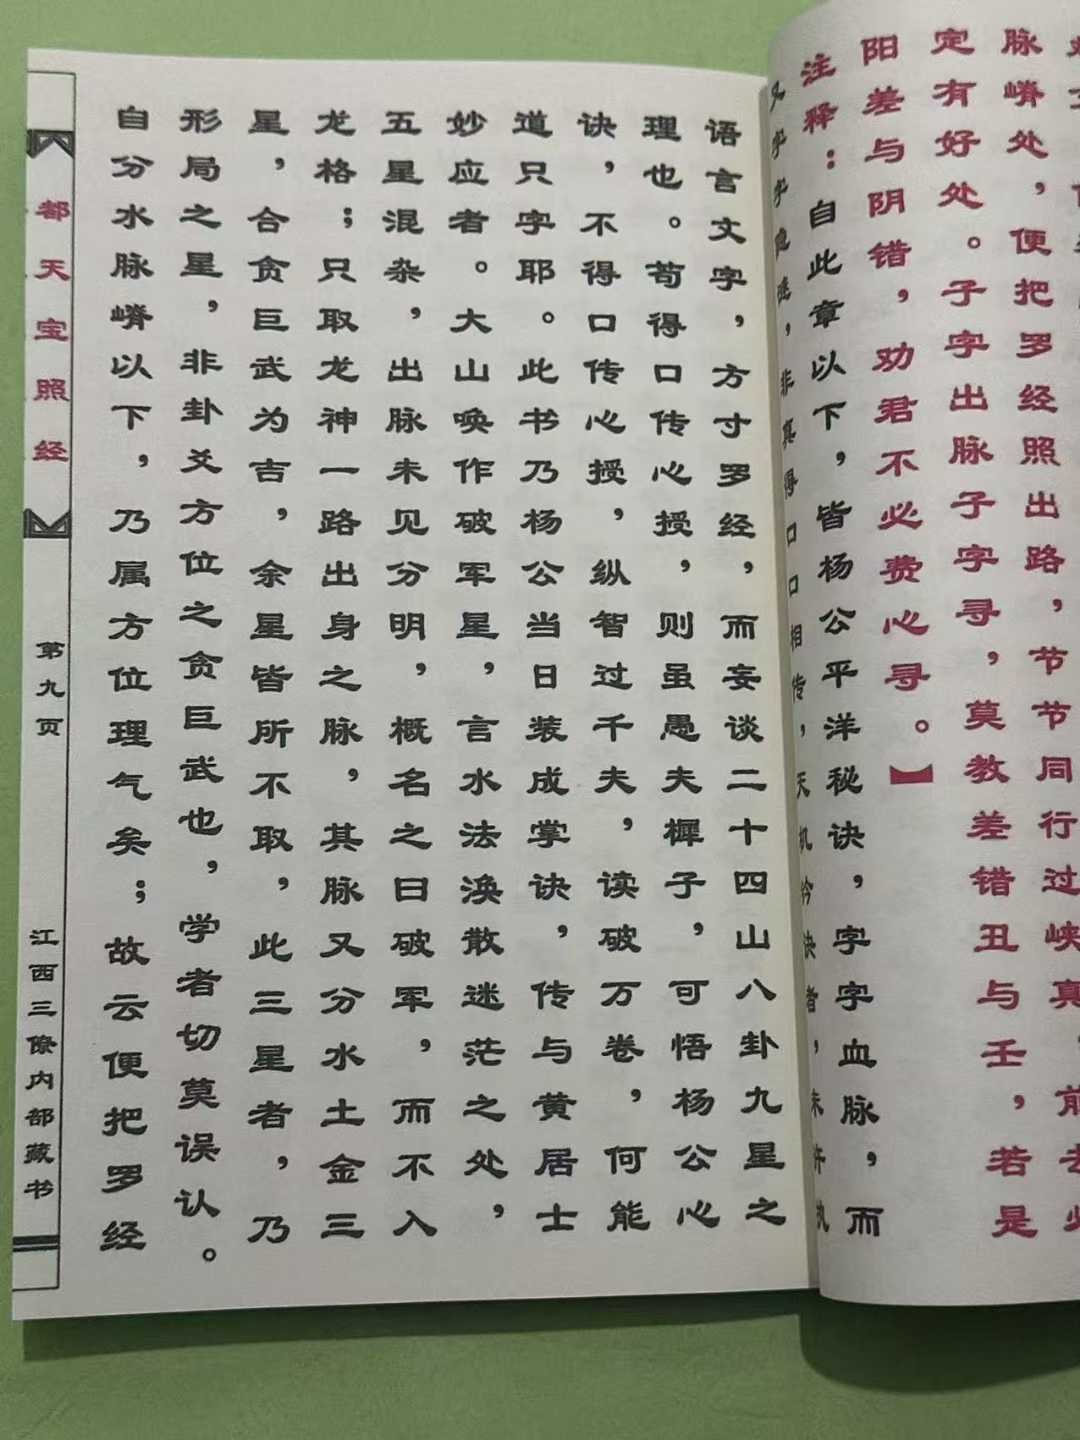 脉嵴处，便把罗经照出路，节节同行过峡真，前去
定有好处。子字出脉子字寻，莫教差错丑与壬，若是
阳差与阴错，劝君不必费心寻。】
注释：自此章以下，皆杨公平洋秘诀，字字血脉，而
又字字隐谜，非真得口口相传，天机诀者，未许执
语言文字，方寸罗经，而妄谈二十四山八卦九星之
理也。苟得口传心授，则虽愚夫樨子，可悟杨公心
诀，不得口传心授，纵智过千夫，读破万卷，何能
道只字耶。此书乃杨公当日装成掌诀，传与黄居士
妙应者。大山唤作破军星，言水法涣散迷茫之处，
五星混杂，出脉未见分明，概名之曰破军，而不入
龙格；只取龙神一路出身之脉，其脉又分水土金三
星，合贪巨武为吉，余星皆所不取，此三星者，乃
形局之星，非卦爻方位之贪巨武也，学者切莫误认。
自分水脉嵴以下，乃属方位理气矣；故云便把罗经
都天宝照经
第九页
江西三僚内部藏书